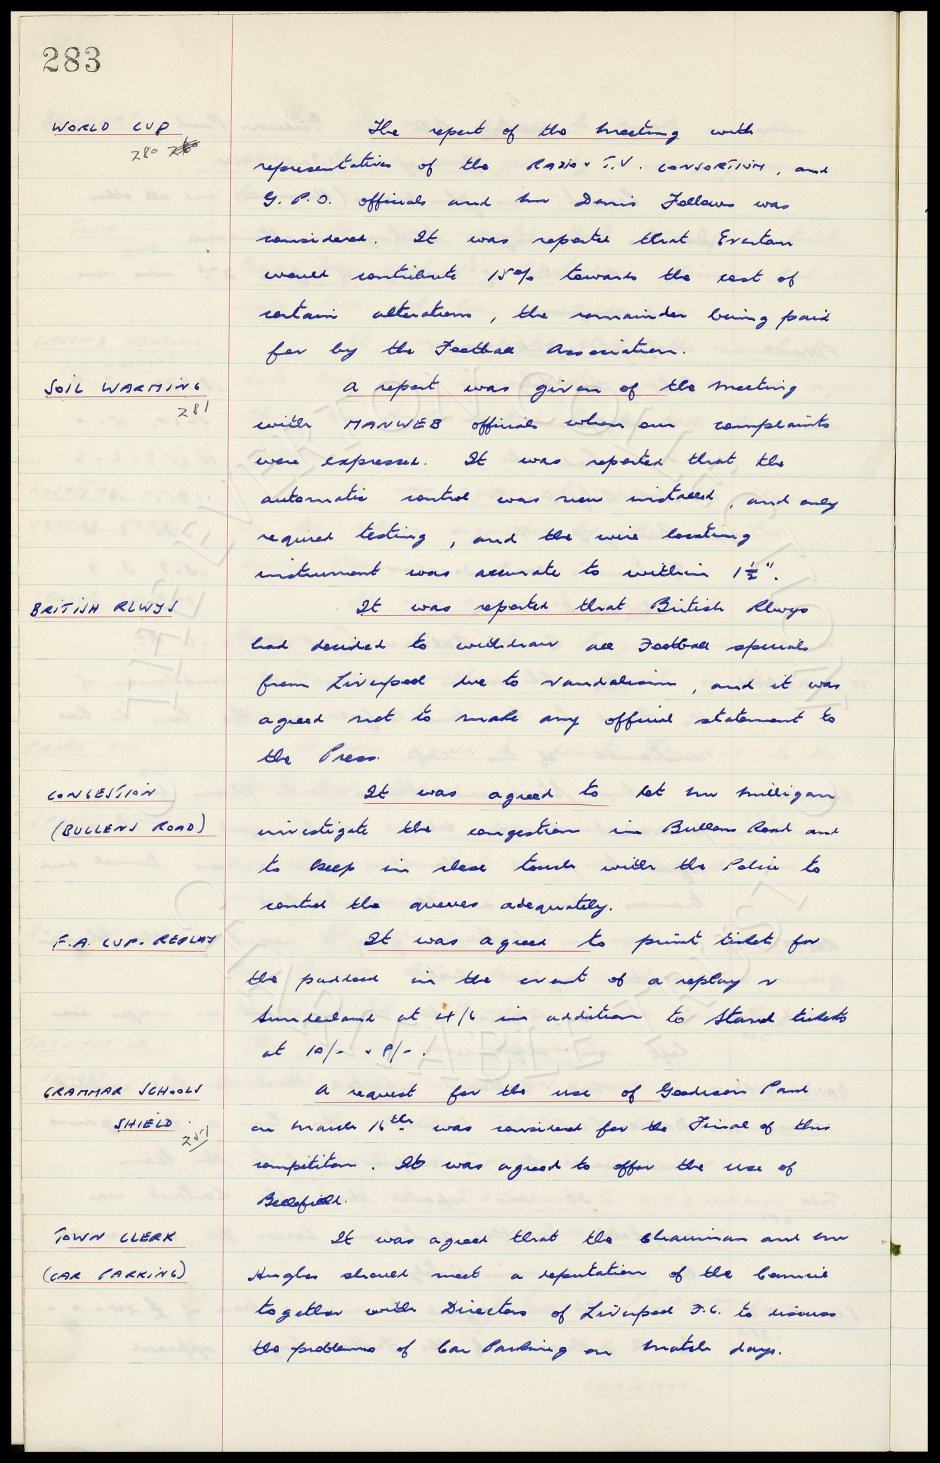 283
WORLD CUP
280
The report of the meeting with
representatives of the RADIO & T.V. CONSORTIUM, and
G.P.O. officials and Mr Denis Follows was
considered. It was reported that Everton
would contribute 15% towards the cost of
certain alterations, the remainder being paid
for by the Football Association.
SOIL WARMING
281
A report was given of the meeting
with MANWEB officials when our complaints
were expressed. It was reported that the
automatic control was now installed, and only
required testing, and the wire locating
instrument was accurate to within 1½".
BRITISH RLWYS
It was reported that British Rlwys
had decided to withdraw all Football specials
from Liverpool due to vandalism, and it was
agreed not to make any official statement to
the Press.
CONGESTION
(BULLENS ROAD)
It was agreed to let Mr Milligan
investigate the congestion in Bullens Road and
to keep in close touch with the Police to
control the queues adequately.
F.A. CUP. REPLAY
It was agreed to print ticket for
the paddock in the event of a replay v
Sunderland at 4/6 in addition to Stand tickets
at 10/- & 8/-.
GRAMMAR SCHOOLS
SHIELD
251
A request for the use of Goodison Park
on March 16th was considered for the Final of this
competition. It was agreed to offer the use of
Bellefield.
TOWN CLERK
(CAR PARKING)
It was agreed that the Chairman and Mr
Hughes should meet a deputation of the Council
together with Directors of Liverpool F.C. to discuss
the problems of Car Parking on match days.